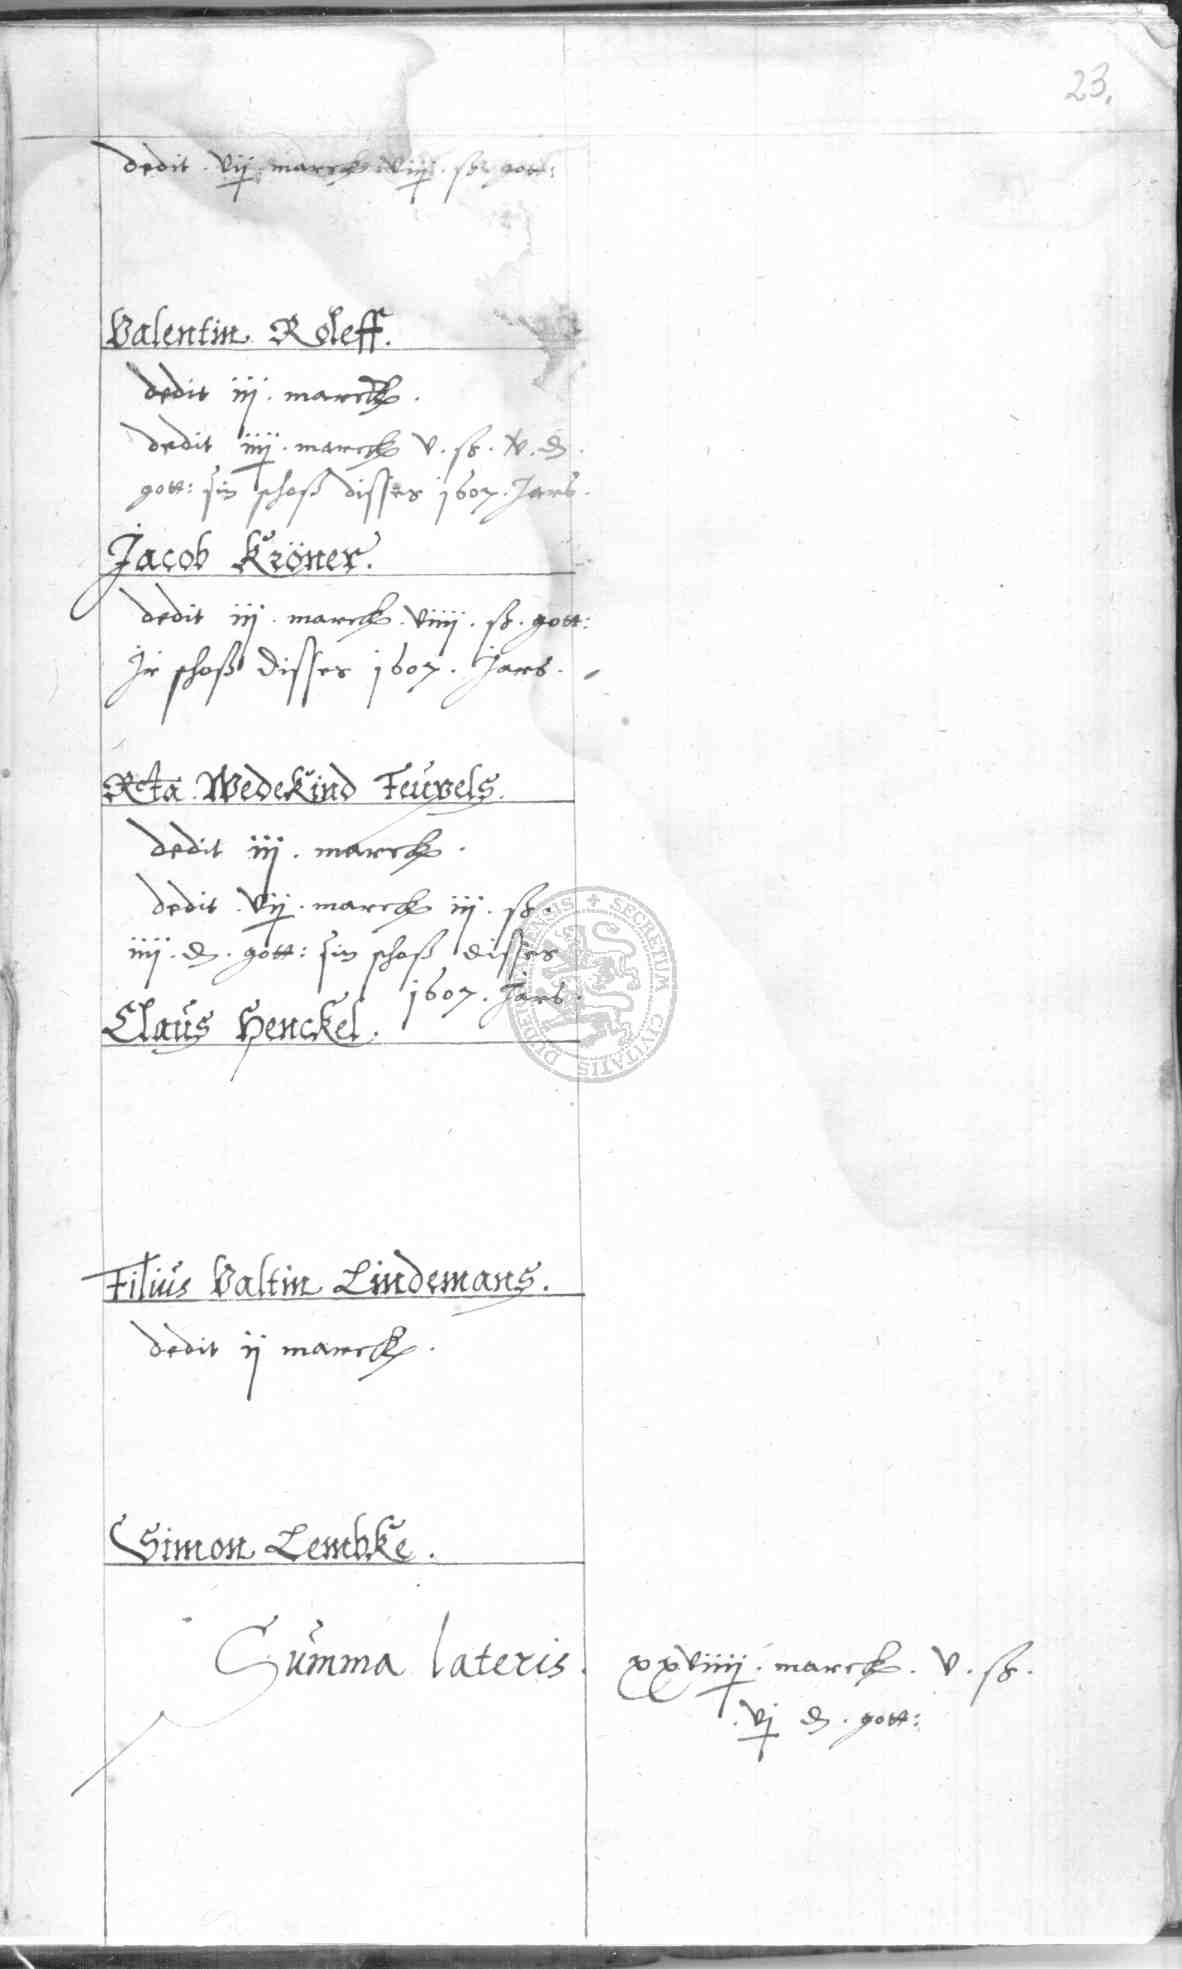 23.
dedit . vij . marck . viij . ß . gott:
Valentin Roleff.
dedit iij . marck .
dedit iiij . marck v . ß . v . d .
gott: sin schoß disses 1607. Jars.
Jacob Kröner.
dedit iij . marck . viiij . ß . gott:
Ir schoß disses 1607 . Jars .
Rcta Wedekind Teuvels.
dedit iij . marck .
dedit . vij . marck iij . ß .
iiij . d . gott: sin schoß disses
1607 . Jars .
Claus Henckel.
Filius Valtin Lindemans.
dedit ij marck .
Simon Lembke .
Summa lateris . xxviiij . marck . v . ß .
. vj d . gott:
SECRETUM CIVITATIS